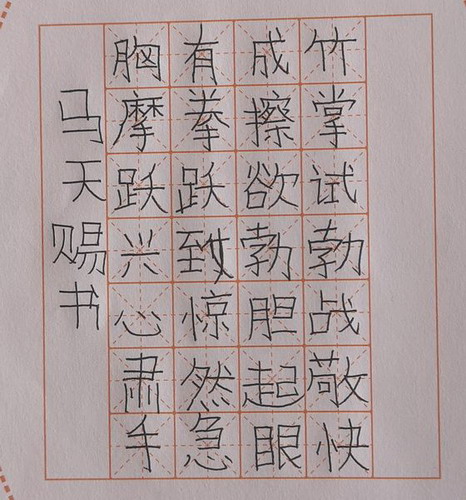 胸有成竹
摩拳擦掌
跃跃欲试
兴致勃勃
心惊胆战
肃然起敬
手急眼快
马天赐书